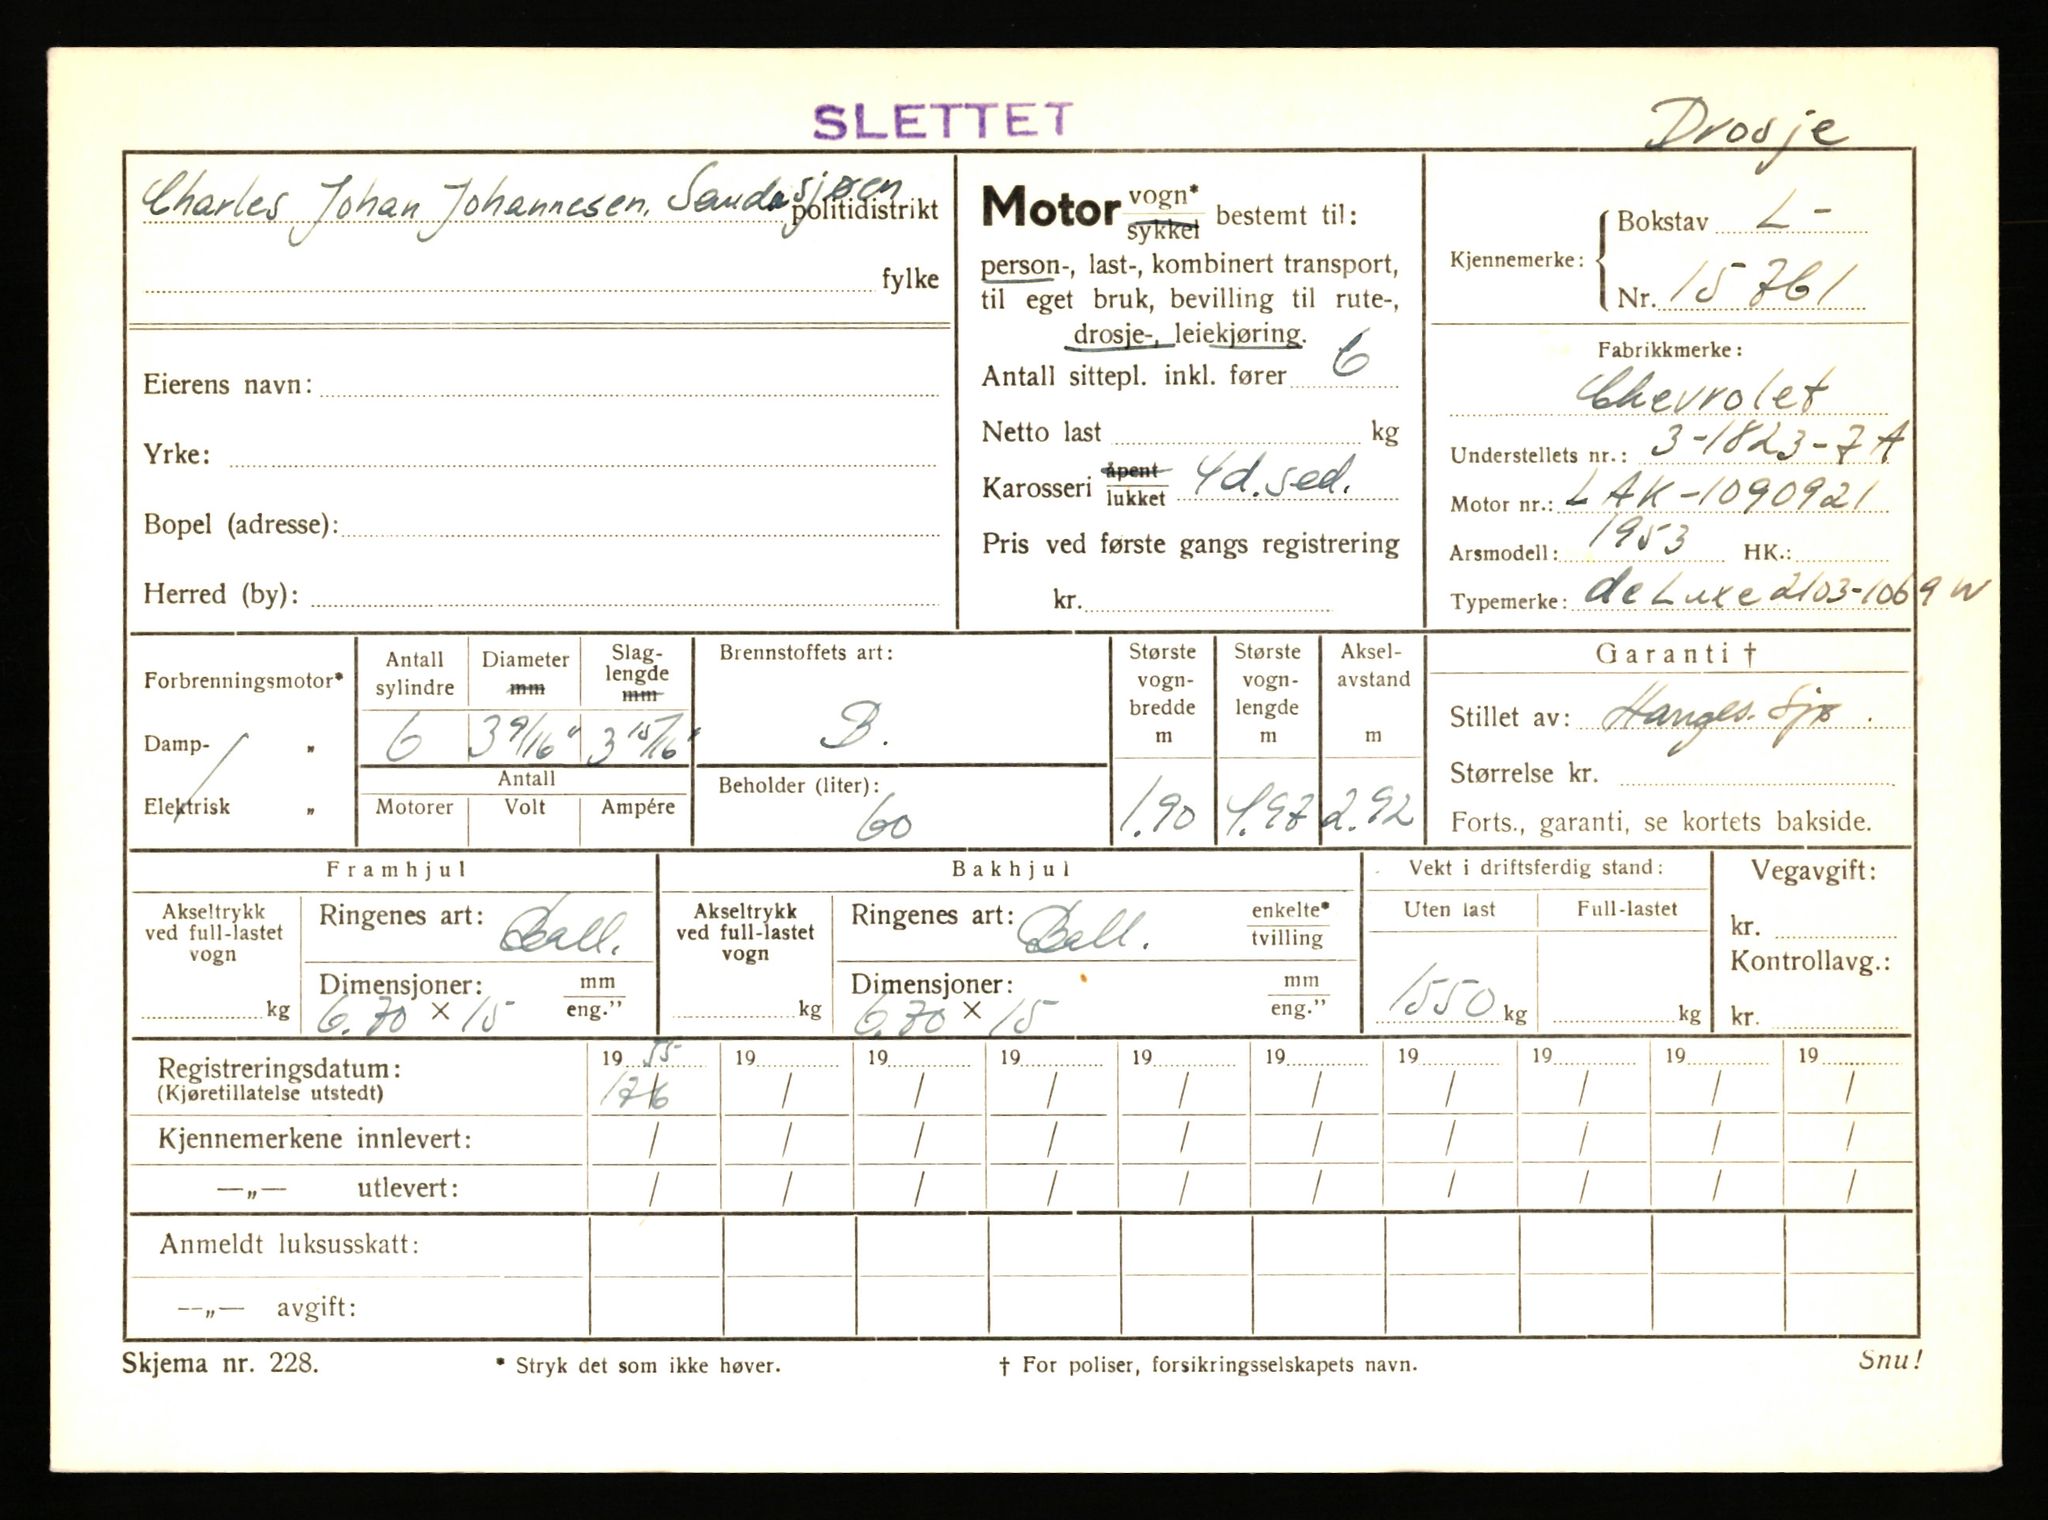 SLETTET
Drosje
Charles Johan Johannesen, Saudasjøen
politidistrikt
fylke
Eierens navn:
Yrke:
Bopel (adresse):
Herred (by):
Motor vogn* sykkel bestemt til:
person-, last-, kombinert transport,
til eget bruk, bevilling til rute-,
drosje-, leiekjøring.
Antall sittepl. inkl. fører 6
Netto last kg
Karosseri åpent lukket 4d. sed.
Pris ved første gangs registrering
kr.
Kjennemerke: Bokstav L-
Nr. 15761
Fabrikkmerke:
Chevrolet
Understellets nr.: 3-1823-7A
Motor nr.: LAK-1090921
Arsmodell: 1953 HK.:
Typemerke: de Luxe 2103-1069W
Forbrenningsmotor*
Damp- „
Elektrisk „
Antall sylindre
6
Diameter mm
3 9/16"
Slag-lengde mm
3 15/16"
Antall
Motorer Volt Ampére
Brennstoffets art:
B.
Beholder (liter):
60
Største vogn-bredde m
1.90
Største vogn-lengde m
4.97
Aksel-avstand m
2.92
Garanti †
Stillet av: Hauges. Sjø.
Størrelse kr.
Forts., garanti, se kortets bakside.
Framhjul
Akseltrykk ved full-lastet vogn
kg
Ringenes art: Ball.
Dimensjoner: mm eng.”
6.70 × 15
Bakhjul
Akseltrykk ved full-lastet vogn
kg
Ringenes art: Ball. enkelte* tvilling
Dimensjoner: mm eng.”
6.70 × 15
Vekt i driftsferdig stand:
Uten last Full-lastet
1550 kg kg
Vegavgift:
kr.
Kontrollavg.:
kr.
Registreringsdatum: 19 55 19 19 19 19 19 19 19 19 19
(Kjøretillatelse utstedt) 17/6 / / / / / / / / /
Kjennemerkene innlevert: / / / / / / / / / /
—„— utlevert: / / / / / / / / / /
Anmeldt luksusskatt:
—„— avgift:
Skjema nr. 228. * Stryk det som ikke høver. † For poliser, forsikringsselskapets navn. Snu!